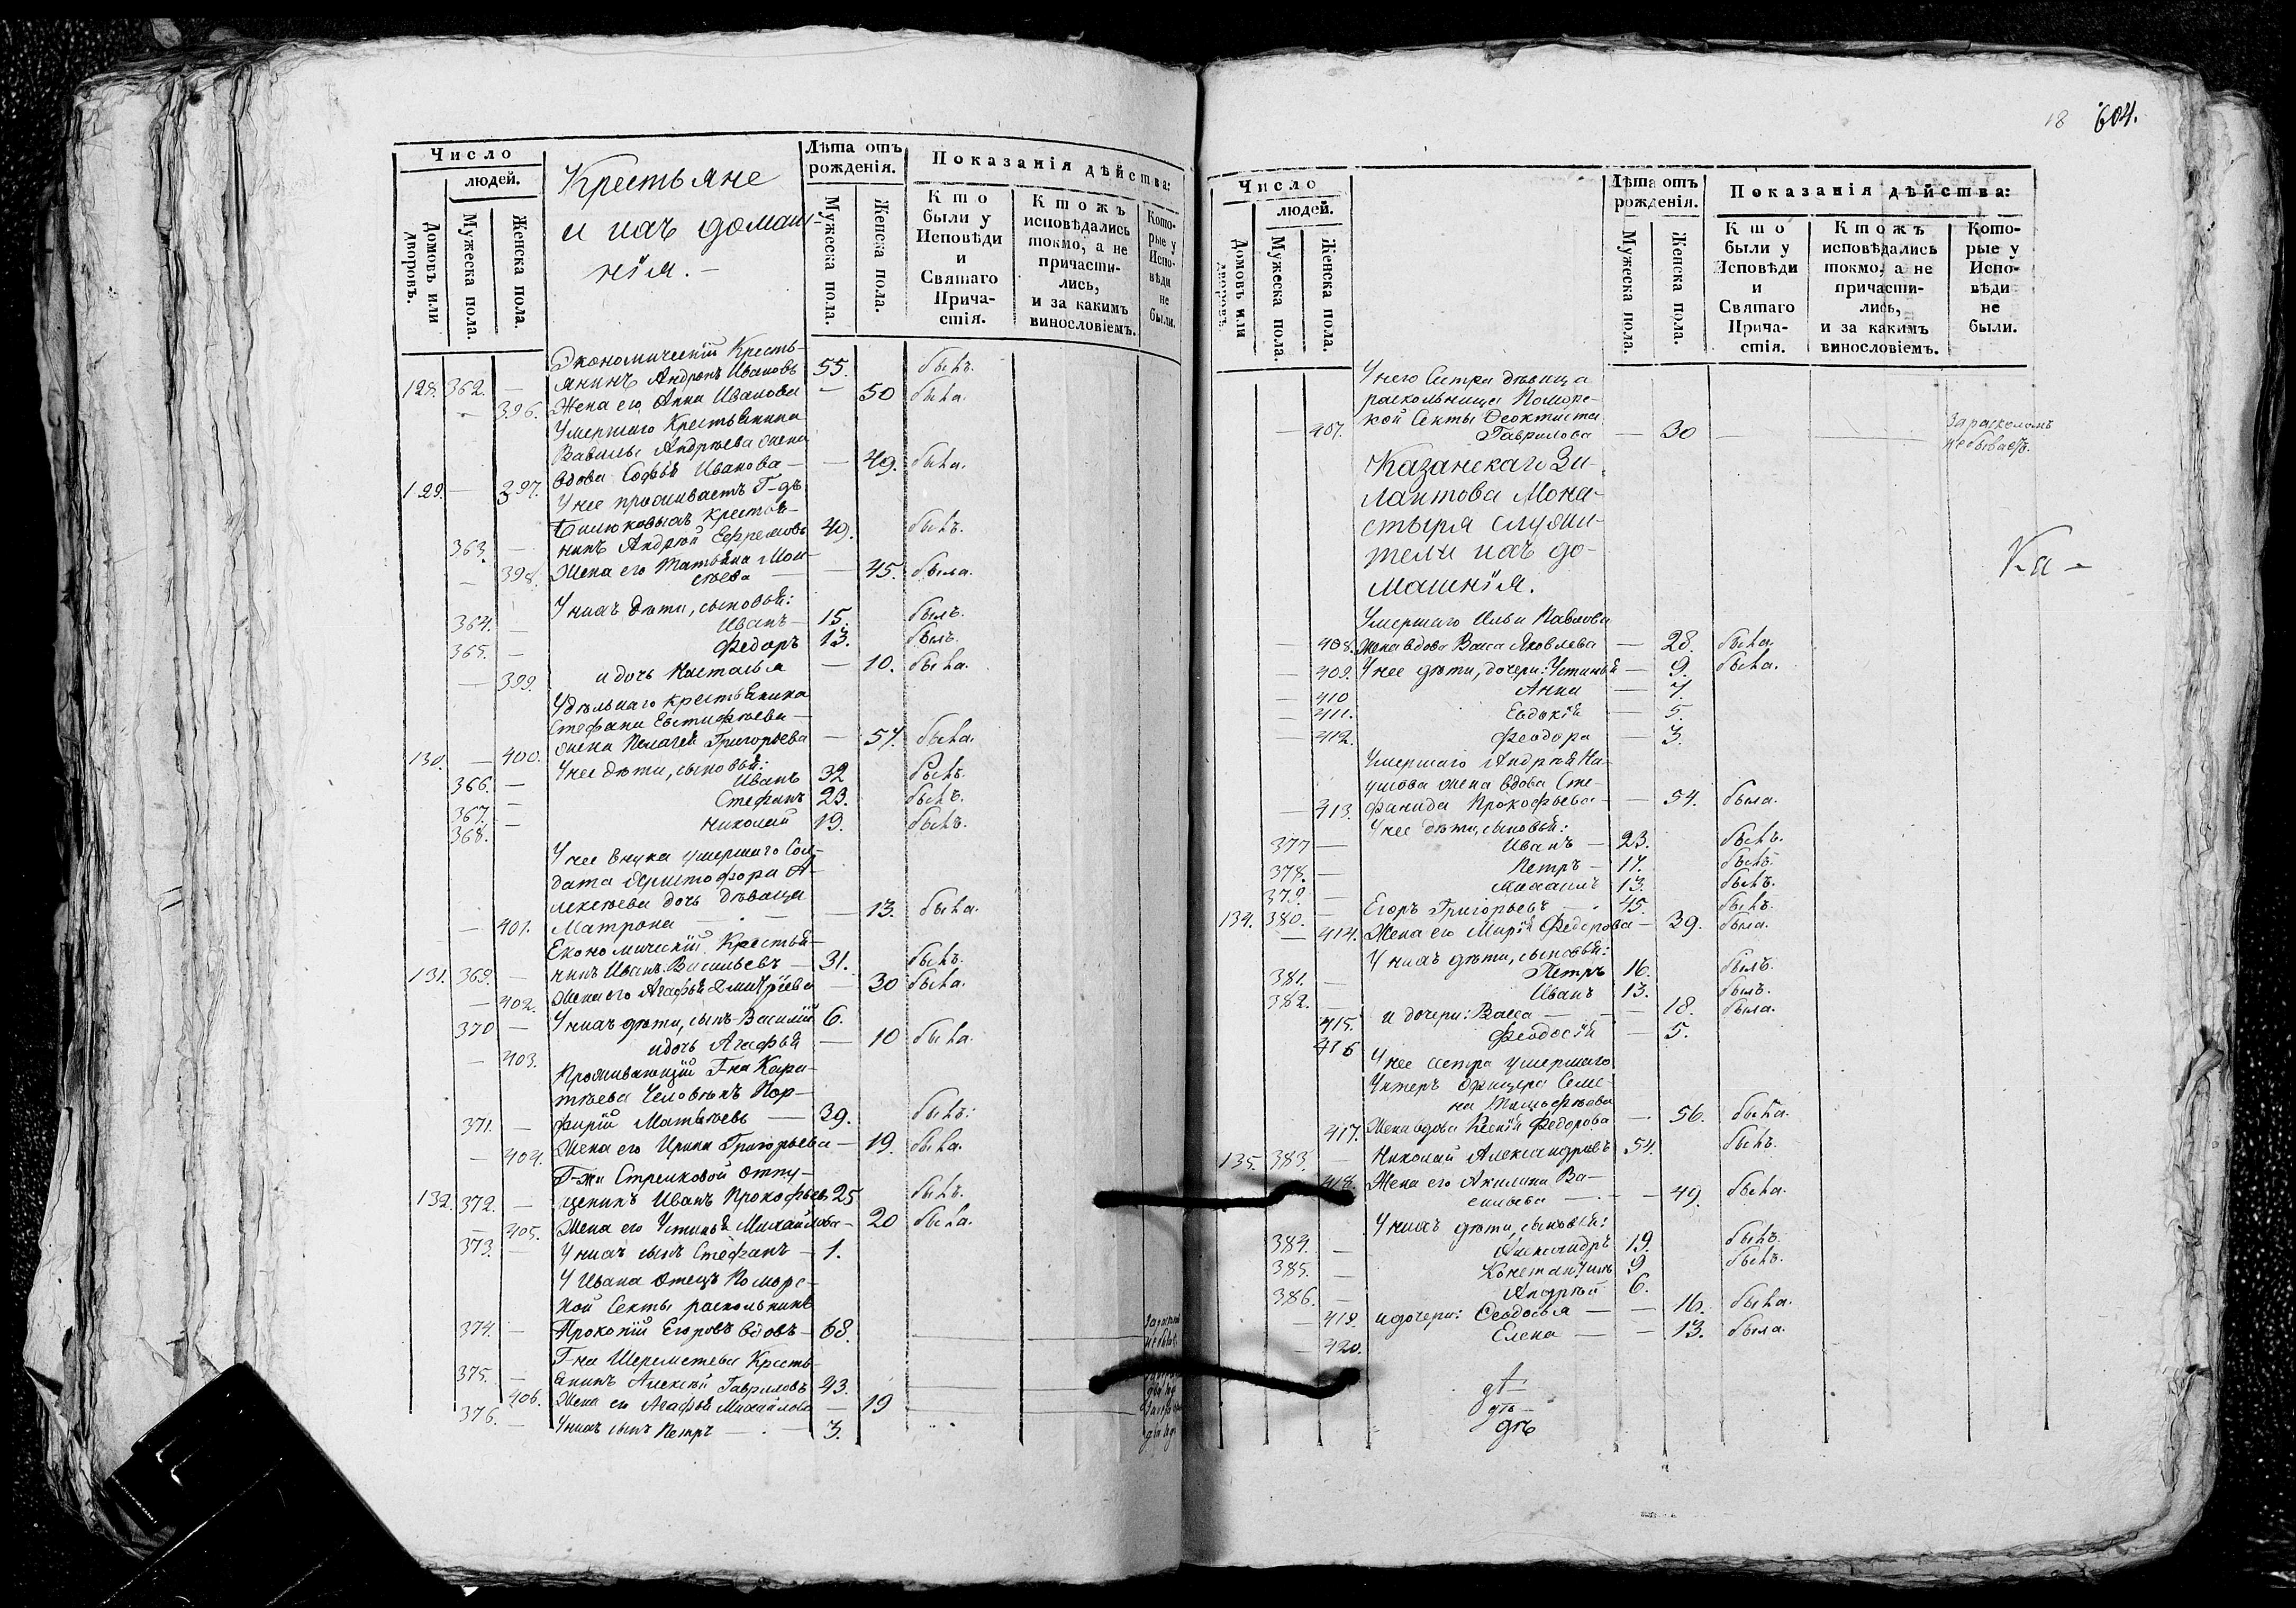 Число
людей.
Домовъ или дворовъ.
Мужеска пола.
Женска пола.
Крестьяне
и ихъ домаш-
нія. –
Лѣта отъ рожденія.
Мужеска пола.
Женска пола.
Показанія дѣйства:
Кто были у Исповѣди и Святаго Причастія.
Ктожъ исповѣдались токмо, а не причастились, и за какимъ винословіемъ.
Которые у Исповѣди не были.
Экономическій Кресть-
128. 362. — янинъ Андронъ Ивановъ 55. былъ.
— 396. Жена его Анна Иванова — 50 была.
Умершаго Крестьянина
Вавилы Андрѣева жена
129. — 397. вдова Софья Иванова — — 49. была.
У нее проживаетъ Г-дъ
крестья-
363. — нинъ Андрей Ефремовъ 40. былъ.
— 398. Жена его Татьяна Мои-
сѣева — — 45. была.
У нихъ дѣти, сыновья:
364. — Иванъ — 15. былъ.
365. — Федоръ 13. былъ.
— 399. и дочь Наталья — 10. была.
Удѣльнаго крестьянина
Стефана Евстифѣева —
130. — 400. жена Пелагея Григорьева — 57. была.
У нее дѣти, сыновья:
366. — Иванъ 32 былъ.
367. — Стефанъ 23. былъ.
368. — Николай 19. былъ.
У нее внука умершаго Сол-
дата Христофора А-
лексѣева дочь дѣвица
— 401. Матрона — — — 13. была.
Економическій Крестья-
131. 369. — нинъ Иванъ Васильевъ — 31. былъ.
— 402. Жена его Агафья Дмитріева — 30 была.
370 — У нихъ дѣти, сынъ Василій 6.
— 403. и дочь Агафья — 10 была.
Проживающій Г-на Кара-
тѣева Человѣкъ Пор-
371. — фирій Матвѣевъ — 39. былъ.
— 404. Жена его Ирина Григорьева — 19. была.
Г-жи Стрелковой отпу-
132. 372. — щеникъ Иванъ Прокофьевъ 25 былъ.
— 405. Жена его Устинья Михайлова — 20 была.
373. — У нихъ сынъ Стефанъ — 1.
У Ивана отецъ Поморс-
кой Секты раскольникъ
374. — Прокопій Егоровъ вдовъ — 68.
Г-на Шереметева Кресть-
375. — янинъ Алексѣй Гавриловъ 43.
406. Жена его Агафья Михайлова — 19
376. — У нихъ сынъ Петръ — — 3.
18 604.
Число
людей.
Домовъ или дворовъ.
Мужеска пола.
Женска пола.
Лѣта отъ рожденія.
Мужеска пола.
Женска пола.
Показанія дѣйства:
Кто были у Исповѣди и Святаго Причастія.
Ктожъ исповѣдались токмо, а не причастились, и за какимъ винословіемъ.
Которые у Исповѣди не были.
У него Сестра дѣвица
раскольница Поморс-
кой Секты Феоктиста
— 407. Гаврилова — 30 — За расколомъ не бываетъ.
Казанскаго Зи-
лантова Мона-
стыря служи-
тели ихъ до-
машнія.
Ка –
Умершаго Ильи Павлова
— 408. Жена вдова Васса Яковлева — 28. была.
— 409. У нее дѣти, дочери: Устинья — 9. была.
— 410 Анна — 7.
— 411. Евдокія — 5.
— 412. Феодора — 3.
Умершаго Андрея На-
умова жена вдова Сте-
— 413. фанида Прокофьева — — 54. была.
У нее дѣти, сыновья:
377 — Иванъ — 23. былъ.
378. — Петръ — 17. былъ.
379. — Михаилъ 13. былъ.
134. 380. — Егоръ Григорьевъ — 45. былъ.
— 414. Жена его Марія Федорова — 39. была.
У нихъ дѣти, сыновья:
381. — Петръ 16. былъ.
382. — Иванъ 13. былъ.
415. и дочери: Васса — — 18. была.
416 Феодосія — 5.
У нее сестра умершаго
Унтеръ Офицера Семе-
на
417. Жена вдова Ксенія Федорова — 56. была.
135. 383. — Николай Александровъ 54. былъ.
418. Жена его Акилина Ва-
сильева — — — 49. была.
У нихъ дѣти, сыновья:
384. — Александръ 19. былъ.
385. — Константинъ 9 былъ.
386. — Андрей 6.
— 419. и дочери: Феодосья — — 16. была.
— 420. Елена — — 13. была.